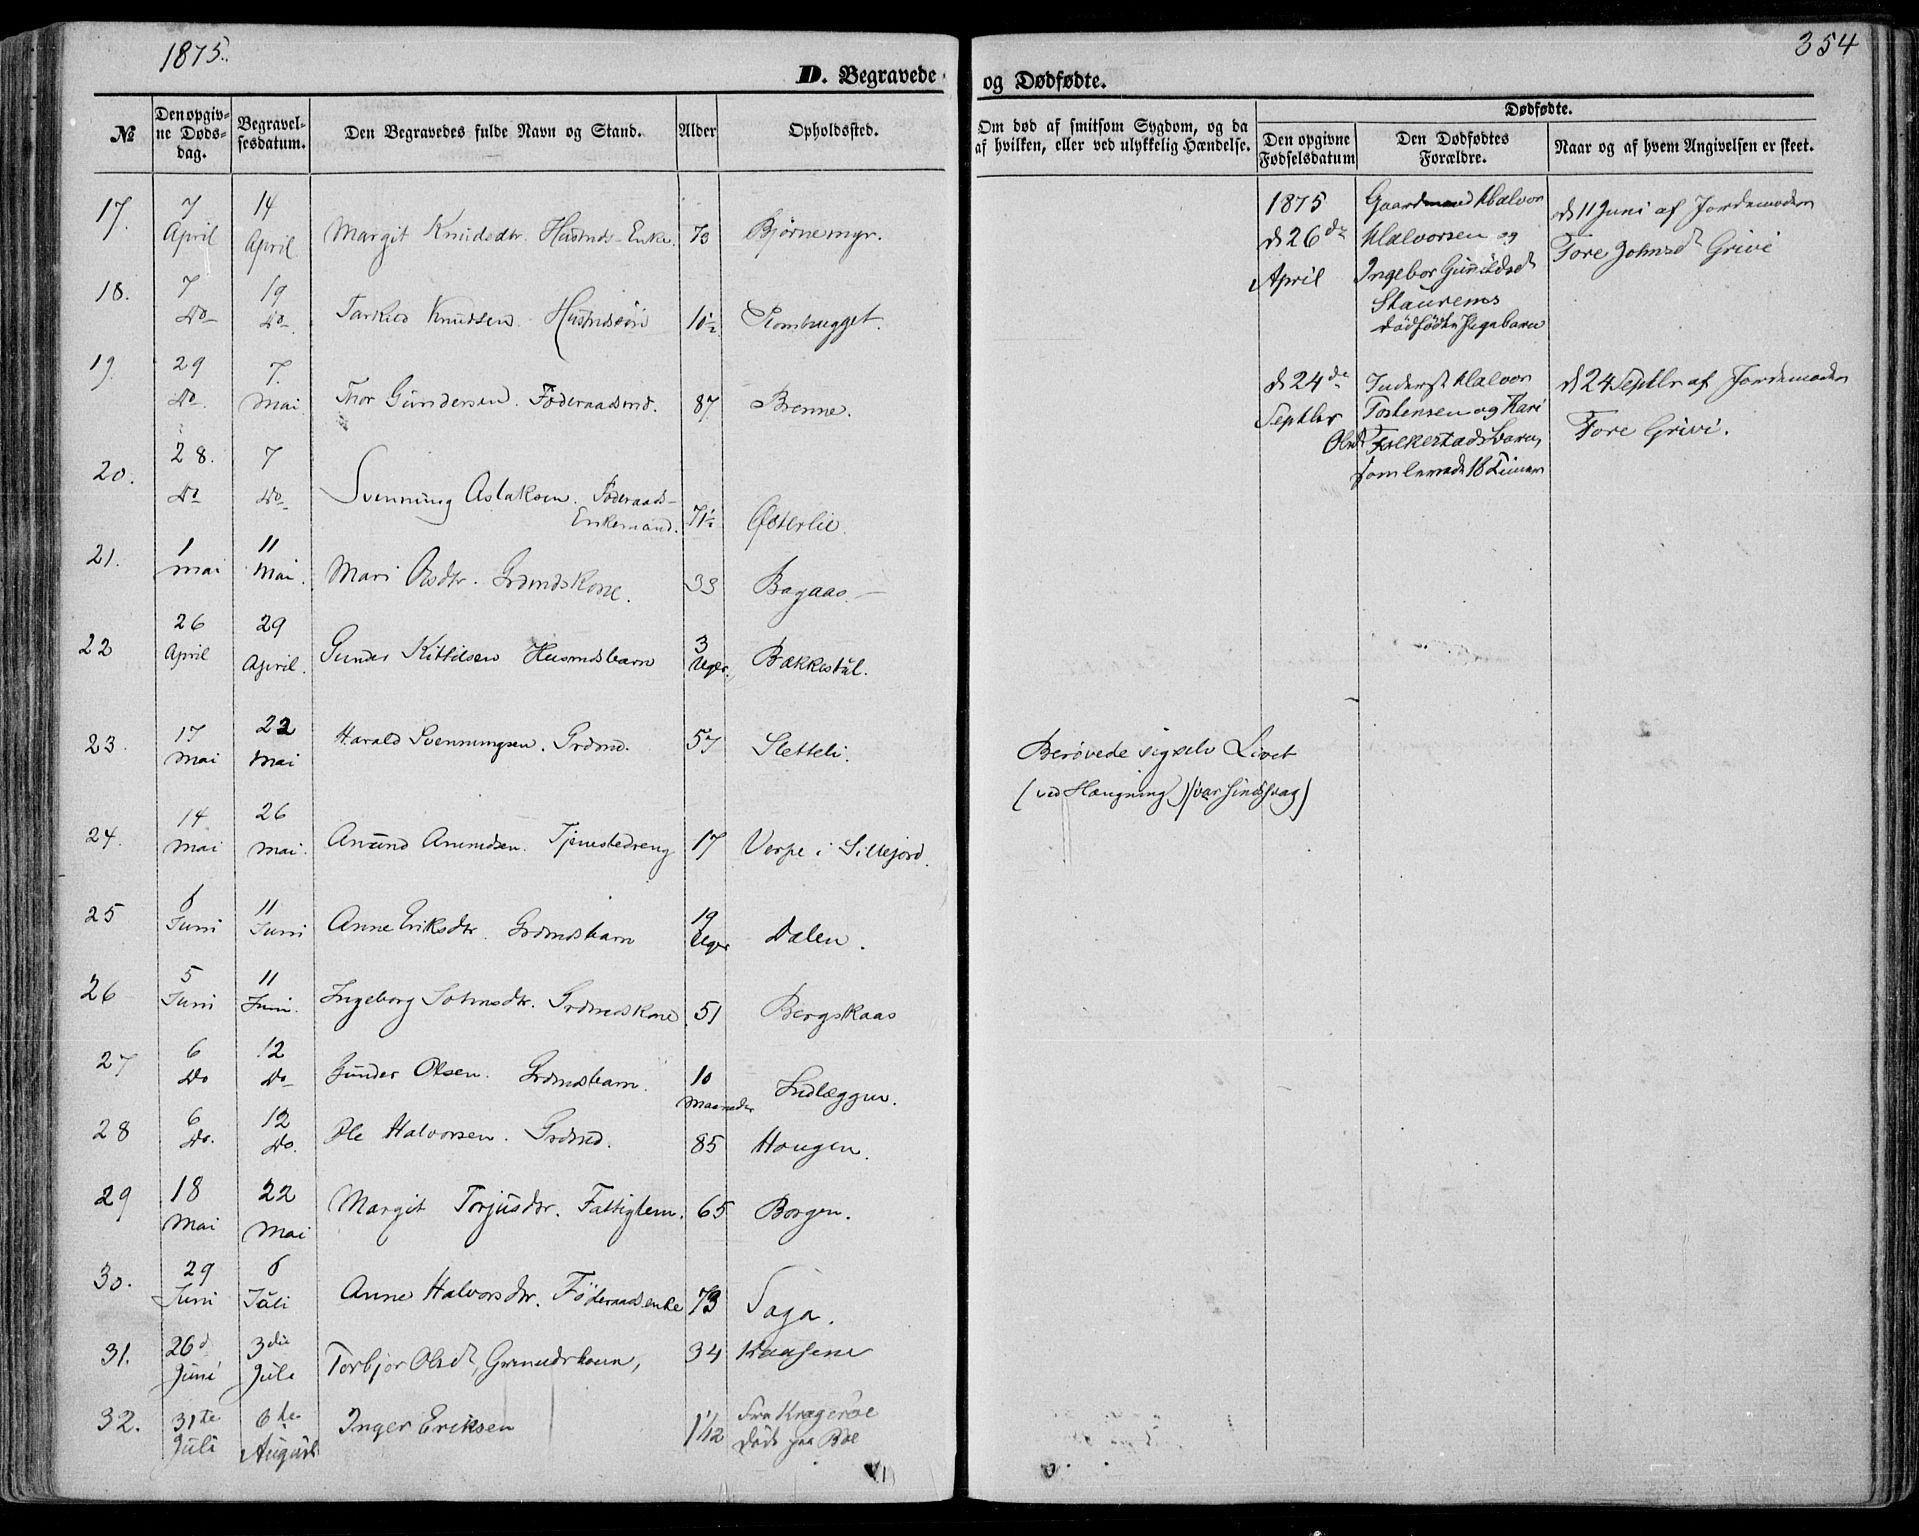 1875.
354
D. Begravede og Dødfødte.
№
Den opgivne Døds-dag.
Begravel-sesdatum.
Den Begravedes fulde Navn og Stand.
Alder
Opholdssted.
Om død af smitsom Sygdom, og da af hvilken, eller ved ulykkelig Hændelse.
Dødfødte.
Den opgivne Fødselsdatum
Den Dødfødtes Forældre.
Naar og af hvem Angivelsen er skeet.
17. 7 April 14 April Margit Knudsdtr. Husmds-Enke. 73 Bjørnemyr.
18. 7 Do 19 Do Tarkild Knudsen Husmdssøn 10½
19. 29 Do. 7. Mai Thor Gundersen. Føderaadsmd. 87 Brenne.
20. 28. Do 7 Do Svenning Aslaksen. Føderaads-
Enkemand. 71½ Østerlie.
21. 1 Mai 11 Mai. Mari Olsdtr. Grdmdskone. 33 Bagaas.
22 26 April 29 April. Gunder Kittilsen Husmdsbarn 3 Uger. Bakkestul.
23. 17 Mai 22 Mai Harald Svenningsen. Grdmd. 57 Sletteli.
Berøvede sig selv Livet
(ved Hængning) (var sindssvag)
24. 14 Mai 26 Mai. Anund Anundsen. Tjenestedreng 17 Verpe i Sillejord.
25 8 Juni 11 Juni Anne Eriksdtr. Grdmdsbarn 19 Uger Dalen.
26 5 Juni 11 Juni. Ingeborg Johnsdtr. Grdmdskone 51 Bergskaas
27 6 Do 12 Do Gunder Olsen. Grdmdsbarn. 10 Maaneder Indlæggen.
28 6 Do. 12 Do. Ole Halvorsen. Grdmd. 85 Haugen.
29 18 Mai 22 Mai Margit Torjusdtr. Fattiglem. 65 Borgen.
30. 29 Juni 6 Juli Anne Halvorsdtr. Føderaadsenke 73 Saga.
31. 26d Juni 3die Juli Torbjør Olsdt, 34 Kaasene
32. 31te Juli 6te August Inger Eriksen 1 1/12 Fra Kragerøe
Døde paa Bøe
1875
d 26de
April
Gaardmand Halvor
Halvorsen og
Ingebor Gunildsdt
Staurems
dødfødte Pigebarn
d 11 Juni af Jordemoderen
Tore Johnsdt Grivi
d 24de
Septbr
Inderst Halvor
Tostensen og Kari
Olsdt Folkestads Barn,
som levede 18 Timer
d 24 Septbr af Jordemoderen
Tore Grivi.